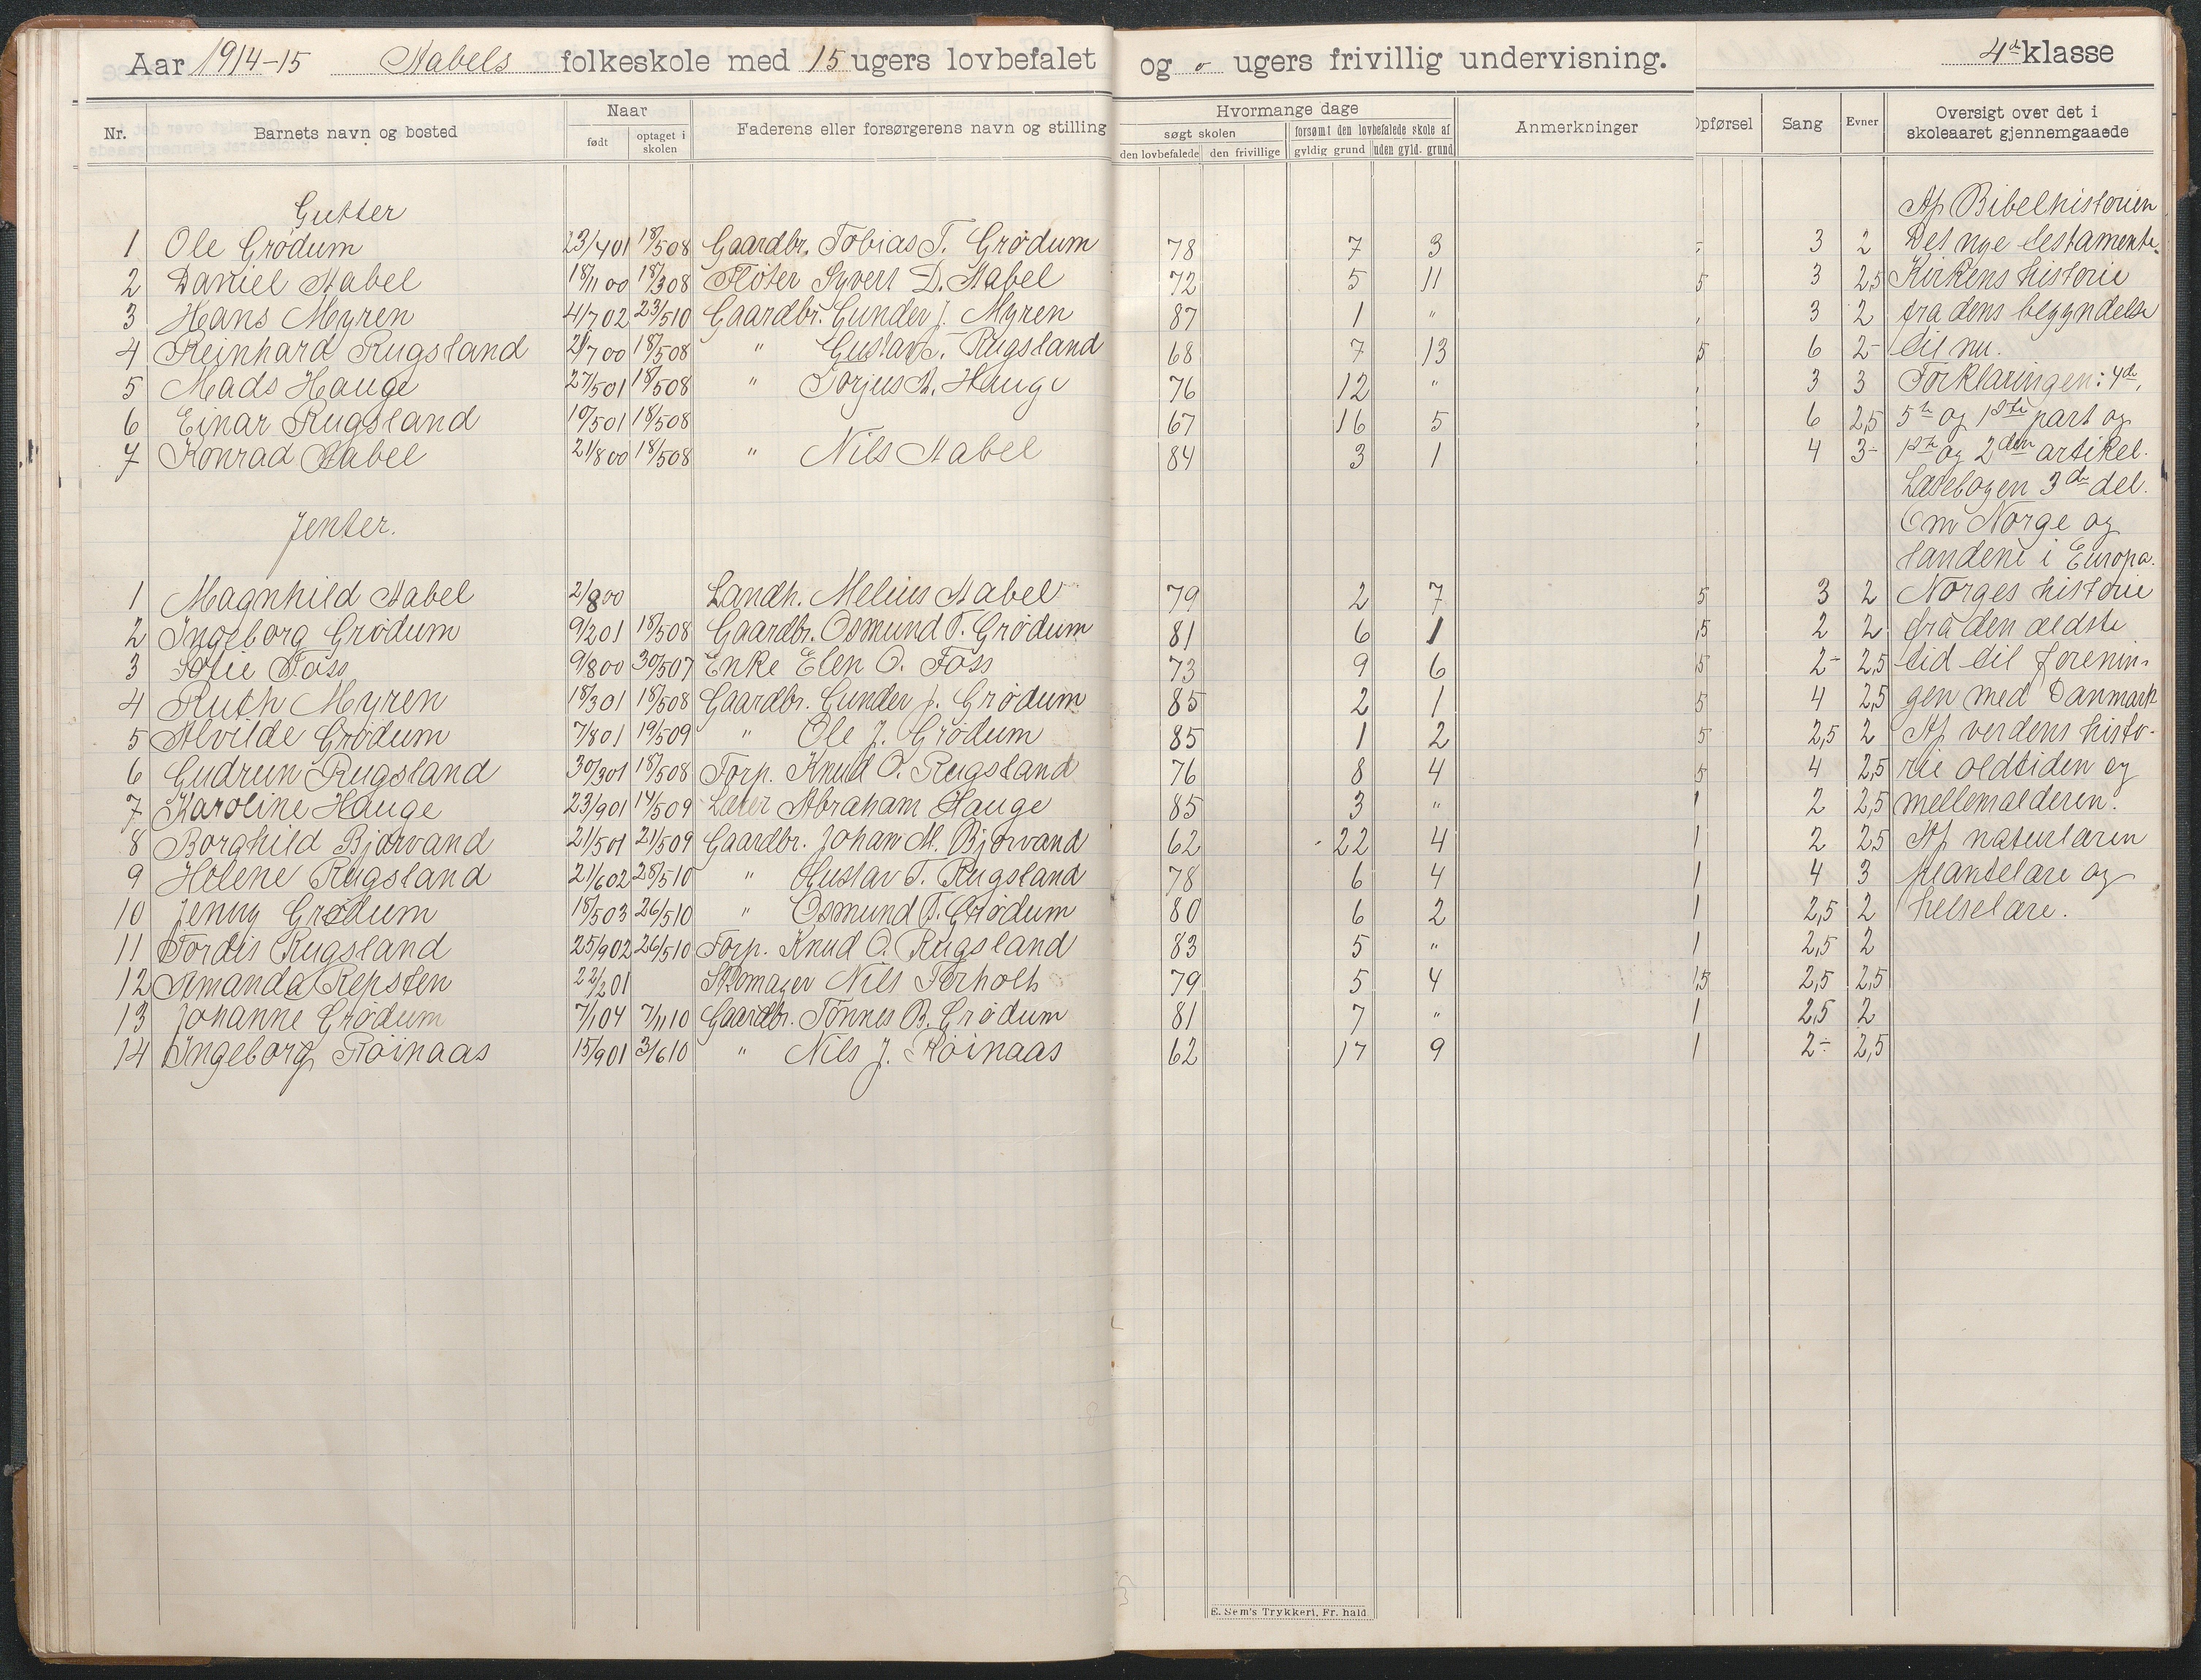 Aar 1914-15 Stabels folkeskole med 15 ugers lovbefalet og o ugers frivillig undervisning. 4de klasse
Nr. Barnets navn og bosted Naar Faderens eller forsørgerens navn og stilling Hvormange dage Anmerkninger Opførsel Sang Evner Oversigt over det i skoleaaret gjennemgaaede
født optaget i skolen søgt skolen forsømt den lovbefalede skole af
den lovbefalede den frivillige gyldig grund uden gyld. grund
Gutter Af Bibelhistorien
1 Ole Grødum 23/4 01 18/5 08 Gaardbr. Tobias T. Grødum 78 7 3 3 2 Det nye testamente.
2 Daniel Stabel 18/11 00 18/3 08 Fløter Syvert D. Stabel 72 5 11 5 3 2,5 Kirkens historie
3 Hans Myren 4/7 02 23/5 10 Gaardbr. Gunder J. Myren 87 1 " 3 2 fra dens begyndelse
4 Reinhard Rugsland 2/7 00 18/5 08 " Gustav T. Rugsland 68 7 13 5 6 2- til nu.
5 Mads Hauge 27/5 01 18/5 08 " Torjus A. Hauge 76 12 " 3 3 Forklaringen: 4de,
6 Einar Rugsland 10/5 01 18/5 08 67 16 5 6 2,5 5te og 1ste part og
7 Konrad Stabel 21/8 00 18/5 08 " Nils Stabel 84 3 1 4 3- 1ste og 2den artikel.
Læsebogen 3de del.
Jenter. Om Norge og
landene i Europa.
1 Magnhild Stabel 2/8 00 Landh. Melius Stabel 79 2 7 5 3 2 Norges historie
2 Ingeborg Grødum 9/2 01 18/5 08 Gaardbr. Osmund T. Grødum 81 6 1 ,5 2 2 fra den ældste
3 Sofie Foss 9/8 00 30/5 07 Enke Elen O. Foss 73 9 6 5 2- 2,5 tid til forenin-
4 Ruth Myren 18/3 01 18/5 08 Gaardbr. Gunder J. Grødum 85 2 1 5 4 2,5 gen med Danmark
5 Alvilde Grødum 7/8 01 19/5 09 " Ole J. Grødum 85 1 2 5 2,5 2 Af verdens histo-
6 Gudrun Rugsland 30/3 01 18/5 08 Forp. Knud O. Rugsland 76 8 4 5 4 2,5 rie oldtiden og
7 Karoline Hauge 23/9 01 14/5 09 Læter Abraham Hauge 85 3 " 1 2 2,5 mellemalderen.
8 Borghild Bjorvand 21/5 01 21/5 09 Gaardbr. Johan M. Bjorvand 62 22 4 1 2 2,5 Af naturlæren
9 Helene Rugsland 21/6 02 28/5 10 " Gustav T. Rugsland 78 6 4 1 4 3 plantelære og
10 Jenny Grødum 18/5 03 26/5 10 " Osmund T. Grødum 80 6 2 1 2,5 2 helselære.
11 Tordis Rugsland 25/9 02 26/5 10 Forp. Knud O. Rugsland 83 5 " 1 2,5 2
12 Amanda Repsten 22/2 01 Skomager Nils Ferholt 79 5 4 1,5 2,5 2,5
13 Johanne Grødum 7/1 04 7/11 10 Gaardbr. Tønnes B. Grødum 81 7 " 1 2,5 2
14 Ingeborg Røinaas 15/9 01 3/6 10 " Nils J. Røinaas 62 17 9 1 2- 2,5
E. Sem's Trykkeri, Fr. hald.